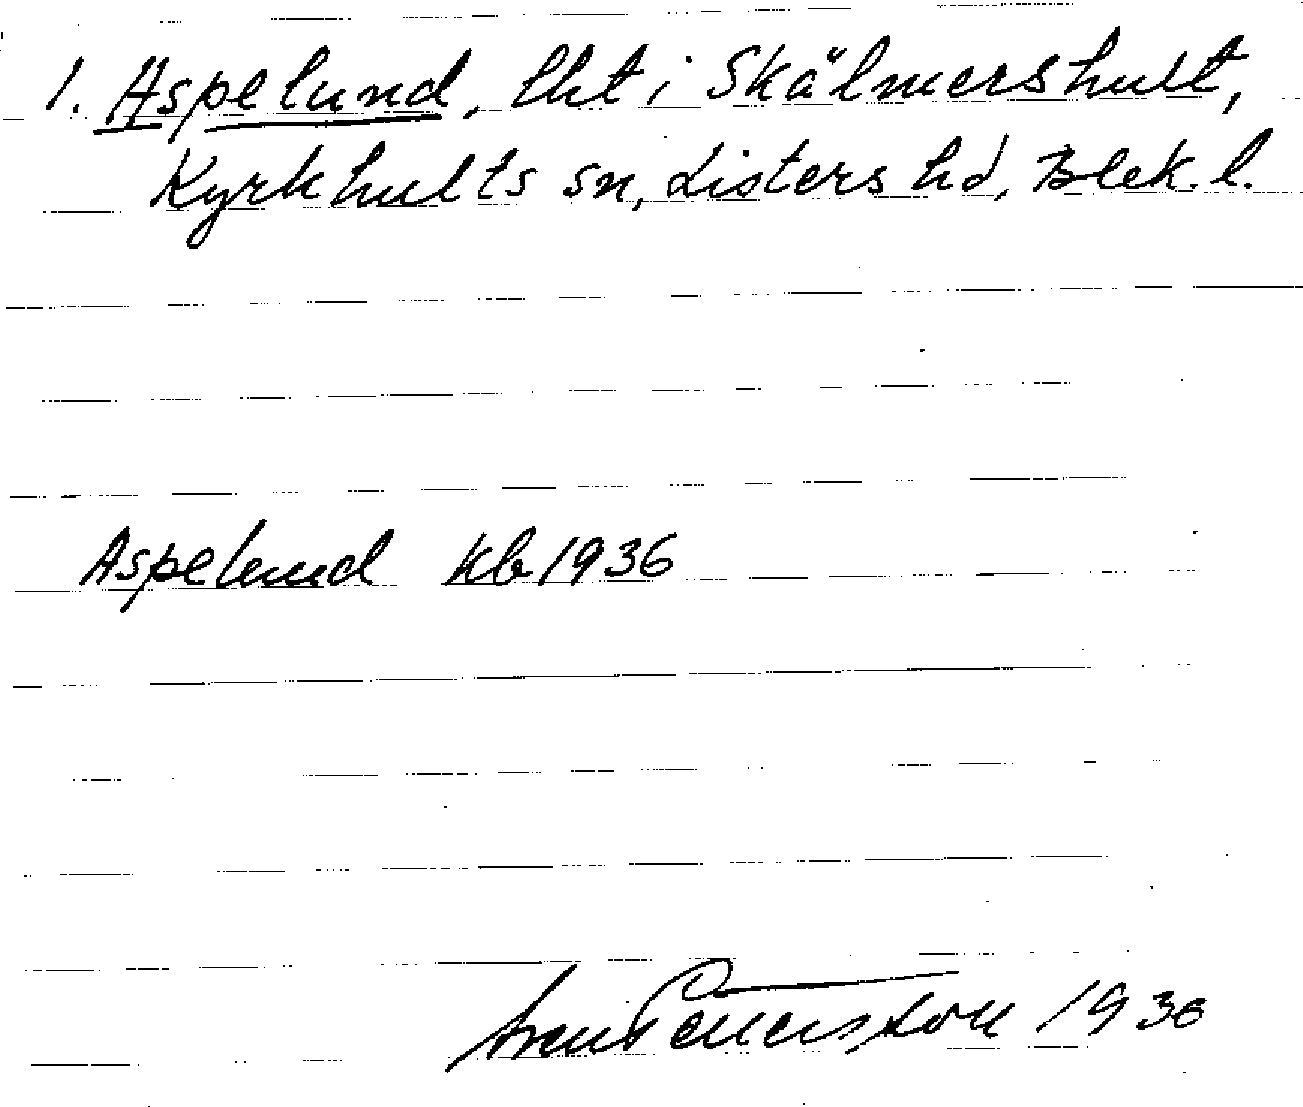 1. Aspelund, lht i Skälmershult,
Kyrkhults sn, Listers hd, Blek. l.
Aspelund kb 1936
Sven Petersson 1936